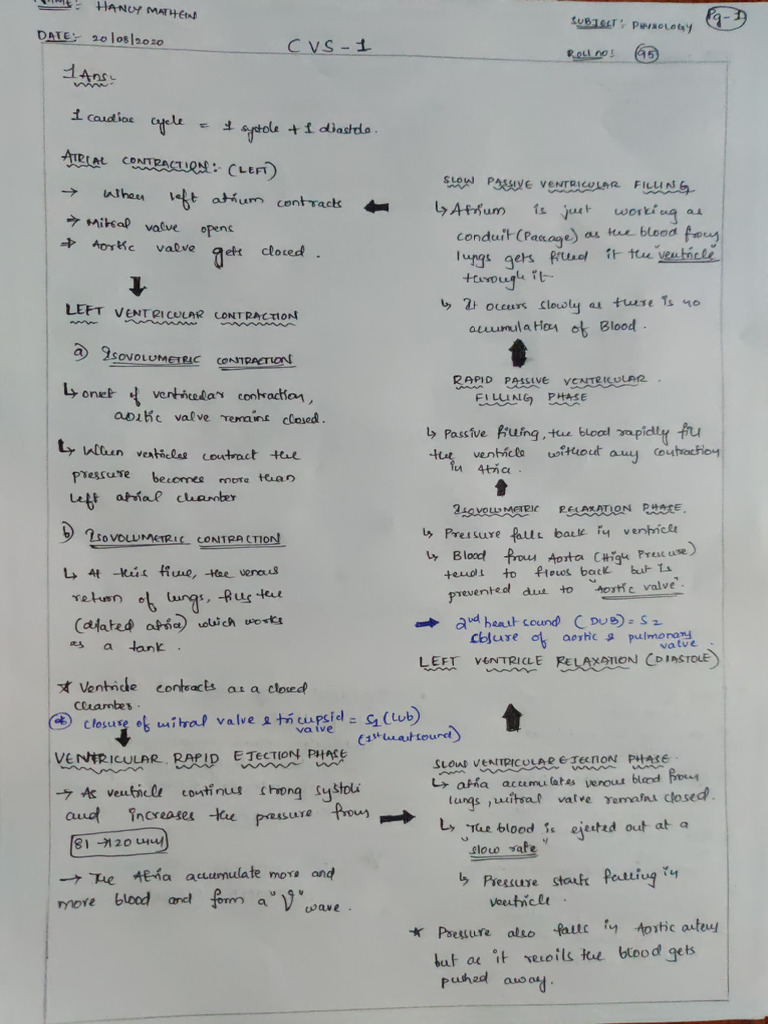 NAME:- HANCY MATHEIN
SUBJECT:- PHYSIOLOGY
Pg-1
DATE:- 20/08/2020
CVS-1
ROLL NO: 95
1 Ans:-
1 cardiac cycle = 1 systole + 1 diastole.
ATRIAL CONTRACTION:- (LEFT)
→ When left atrium contracts
→ Mitral valve opens
→ Aortic valve gets closed.
LEFT VENTRICULAR CONTRACTION
a) ISOVOLUMETRIC CONTRACTION
↳ onset of ventricular contraction,
aortic valve remains closed.
↳ When ventricles contract the
pressure becomes more than
left atrial chamber
b) ISOVOLUMETRIC CONTRACTION
↳ At this time, the venous
return of lungs, fills the
(dilated atria) which works
as a tank.
* Ventricle contracts as a closed
chamber.
* closure of mitral valve & tricupsid valve = S1 (Lub)
(1st heart sound)
VENTRICULAR RAPID EJECTION PHASE
→ As ventricle continus strong systoli
and increases the pressure from
81 → 120 mm
→ The Atria accumulate more and
more blood and form a "V" wave.
SLOW VENTRICULAR EJECTION PHASE
↳ atria accumulates venous blood from
lungs, mitral valve remains closed.
↳ The blood is ejected out at a
"slow rate"
↳ Pressure starts falling in
ventricle.
* Pressure also falls in Aortic artery
but as it recoils the blood gets
pushed away.
LEFT VENTRICLE RELAXATION (DIASTOLE)
→ 2nd heart sound (DUB) = S2
closure of aortic & pulmonary
valve
ISOVOLUMETRIC RELAXATION PHASE.
↳ Pressure falls back in ventricle
↳ Blood from Aorta (High Pressure)
tends to flows back but is
prevented due to "Aortic valve".
RAPID PASSIVE VENTRICULAR
FILLING PHASE
↳ Passive filling, the blood rapidly fill
the ventricle without any contraction
in Atria.
SLOW PASSIVE VENTRICULAR FILLING
↳ Atrium is just working as
conduit (Passage) as the blood from
lungs gets filled it the "ventricle"
through it.
↳ It occurs slowly as there is no
accumulation of Blood.